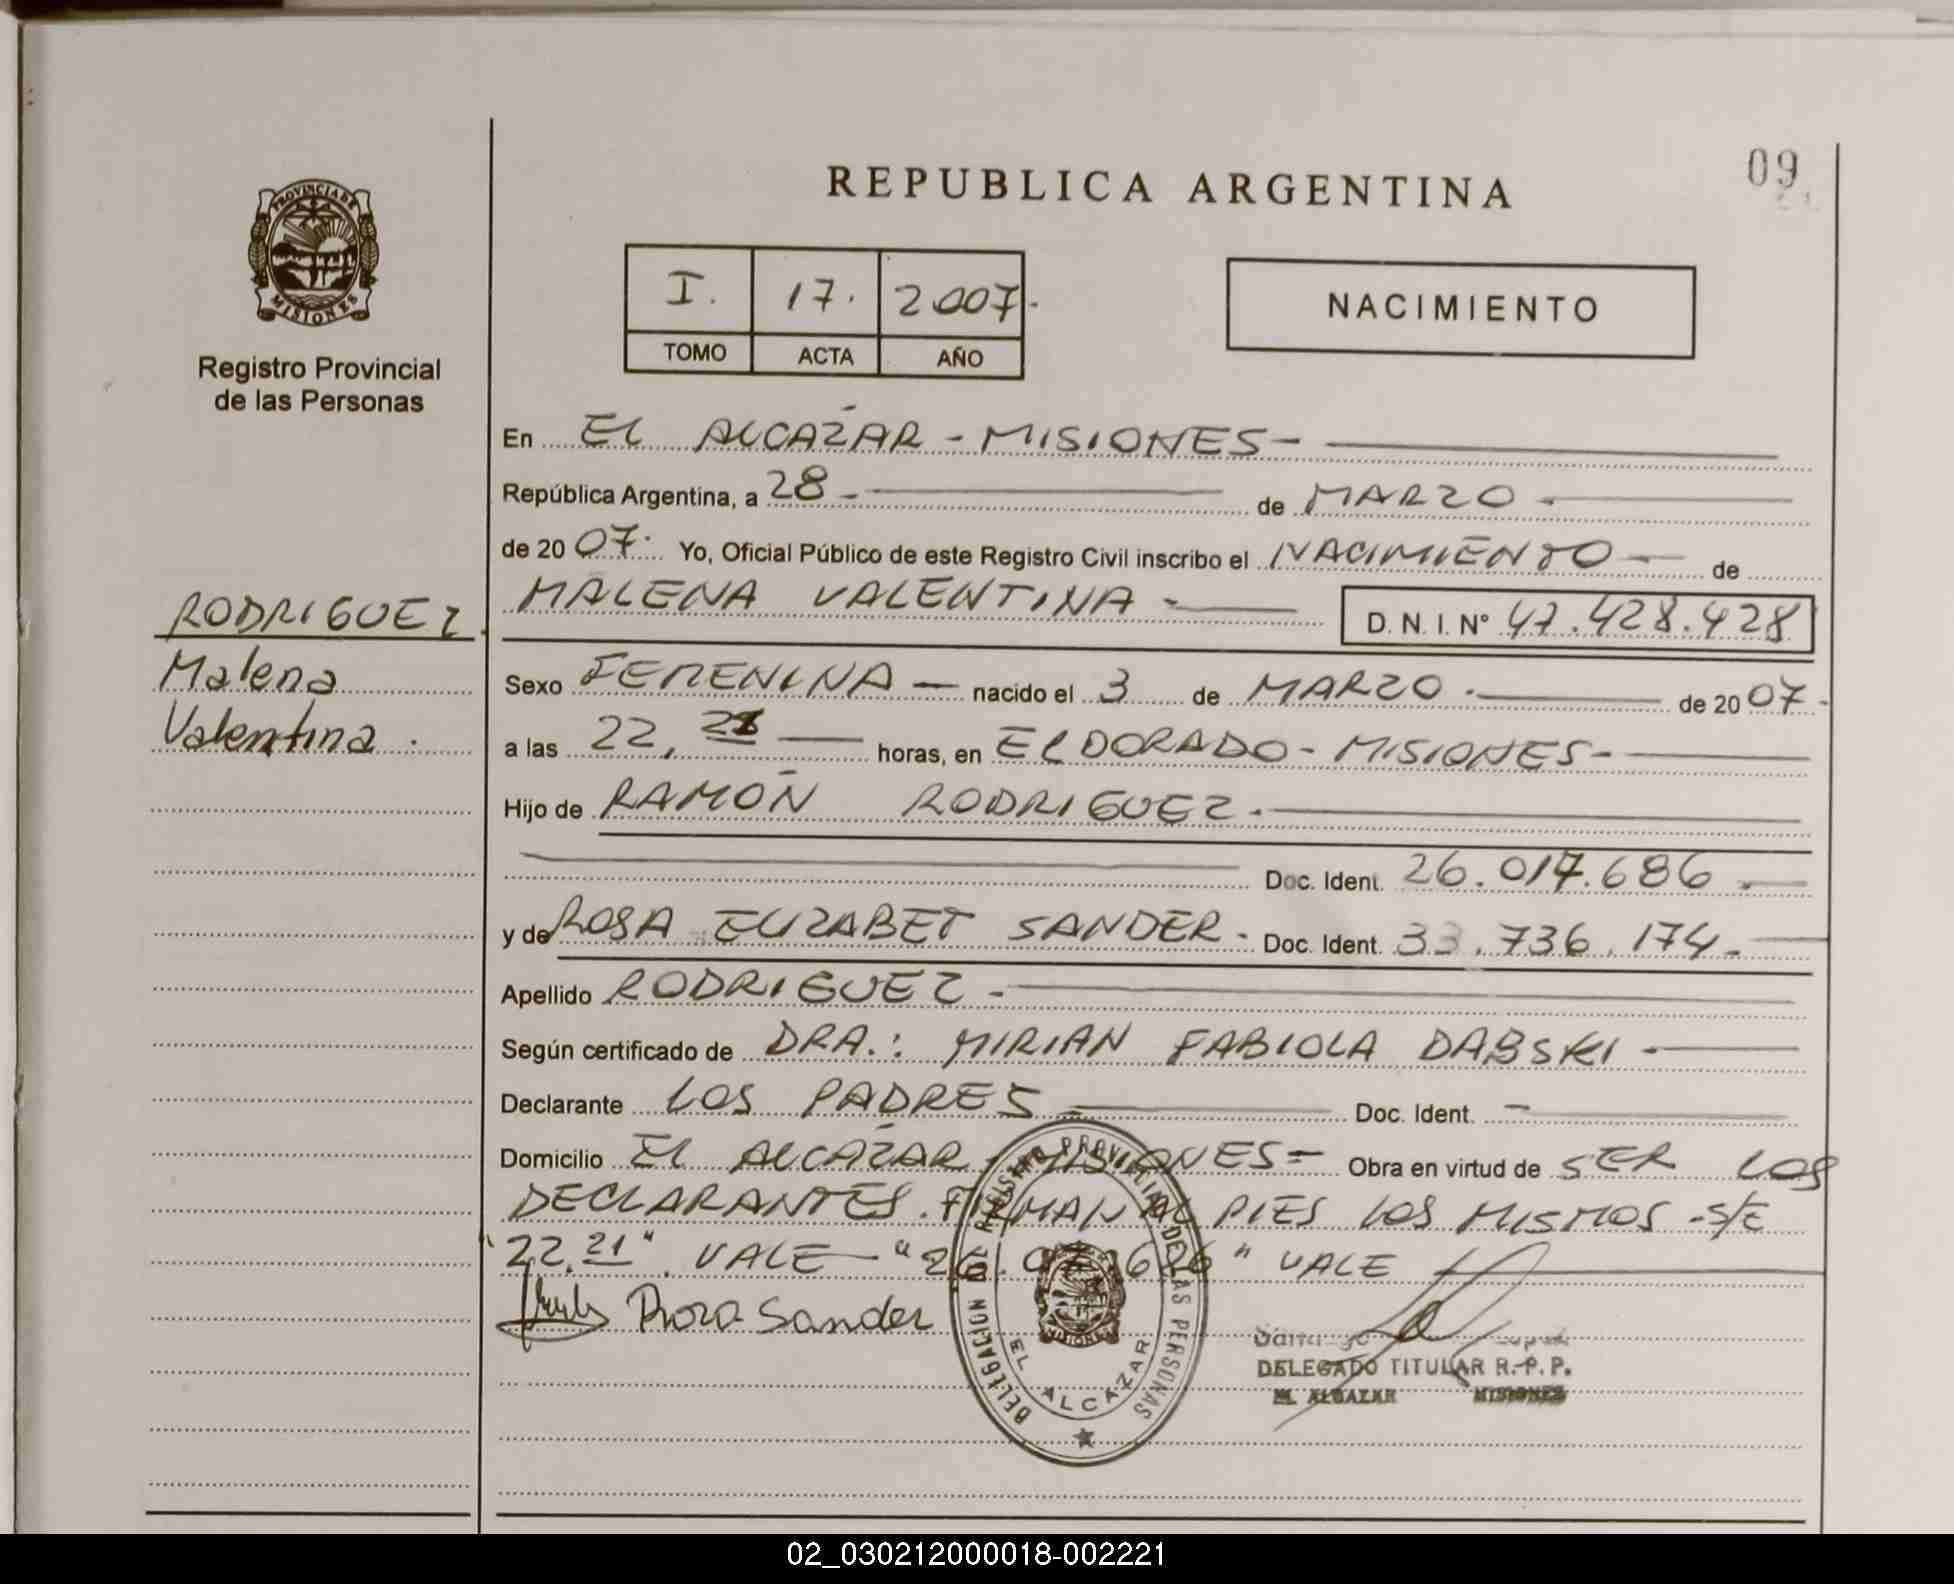 REPUBLICA ARGENTINA
09
PROVINCIA DE
MISIONES
Registro Provincial
de las Personas
I. 17. 2007.
TOMO ACTA AÑO
NACIMIENTO
En EL ALCAZAR - MISIONES -
República Argentina, a 28 - de MARZO -
de 2007. Yo, Oficial Público de este Registro Civil inscribo el NACIMIENTO - de
MALENA VALENTINA - D.N.I. N° 47.428.428
RODRIGUEZ.
Malena
Valentina.
Sexo FEMENINA - nacido el 3 de MARZO. de 2007-
a las 22, horas, en ELDORADO - MISIONES -
Hijo de RAMÓN RODRIGUEZ.
Doc. Ident. 26.017.686 -
y de ROSA ELIZABET SANDER - Doc. Ident. 33.736.174 -
Apellido RODRIGUEZ -
Según certificado de DRA.: MIRIAN FABIOLA DABSKI -
Declarante LOS PADRES - Doc. Ident. -
Domicilio EL ALCAZAR - MISIONES - Obra en virtud de SER LOS
DECLARANTES. FIRMAN AL PIES LOS MISMOS - S/E
"22.21" VALE - "26.017.686" VALE
Rosa Sander
DELEGACION DEL REGISTRO PROVINCIAL DE LAS PERSONAS
EL ALCAZAR
MISIONES
DELEGADO TITULAR R.P.P.
EL ALCAZAR MISIONES
02_030212000018-002221